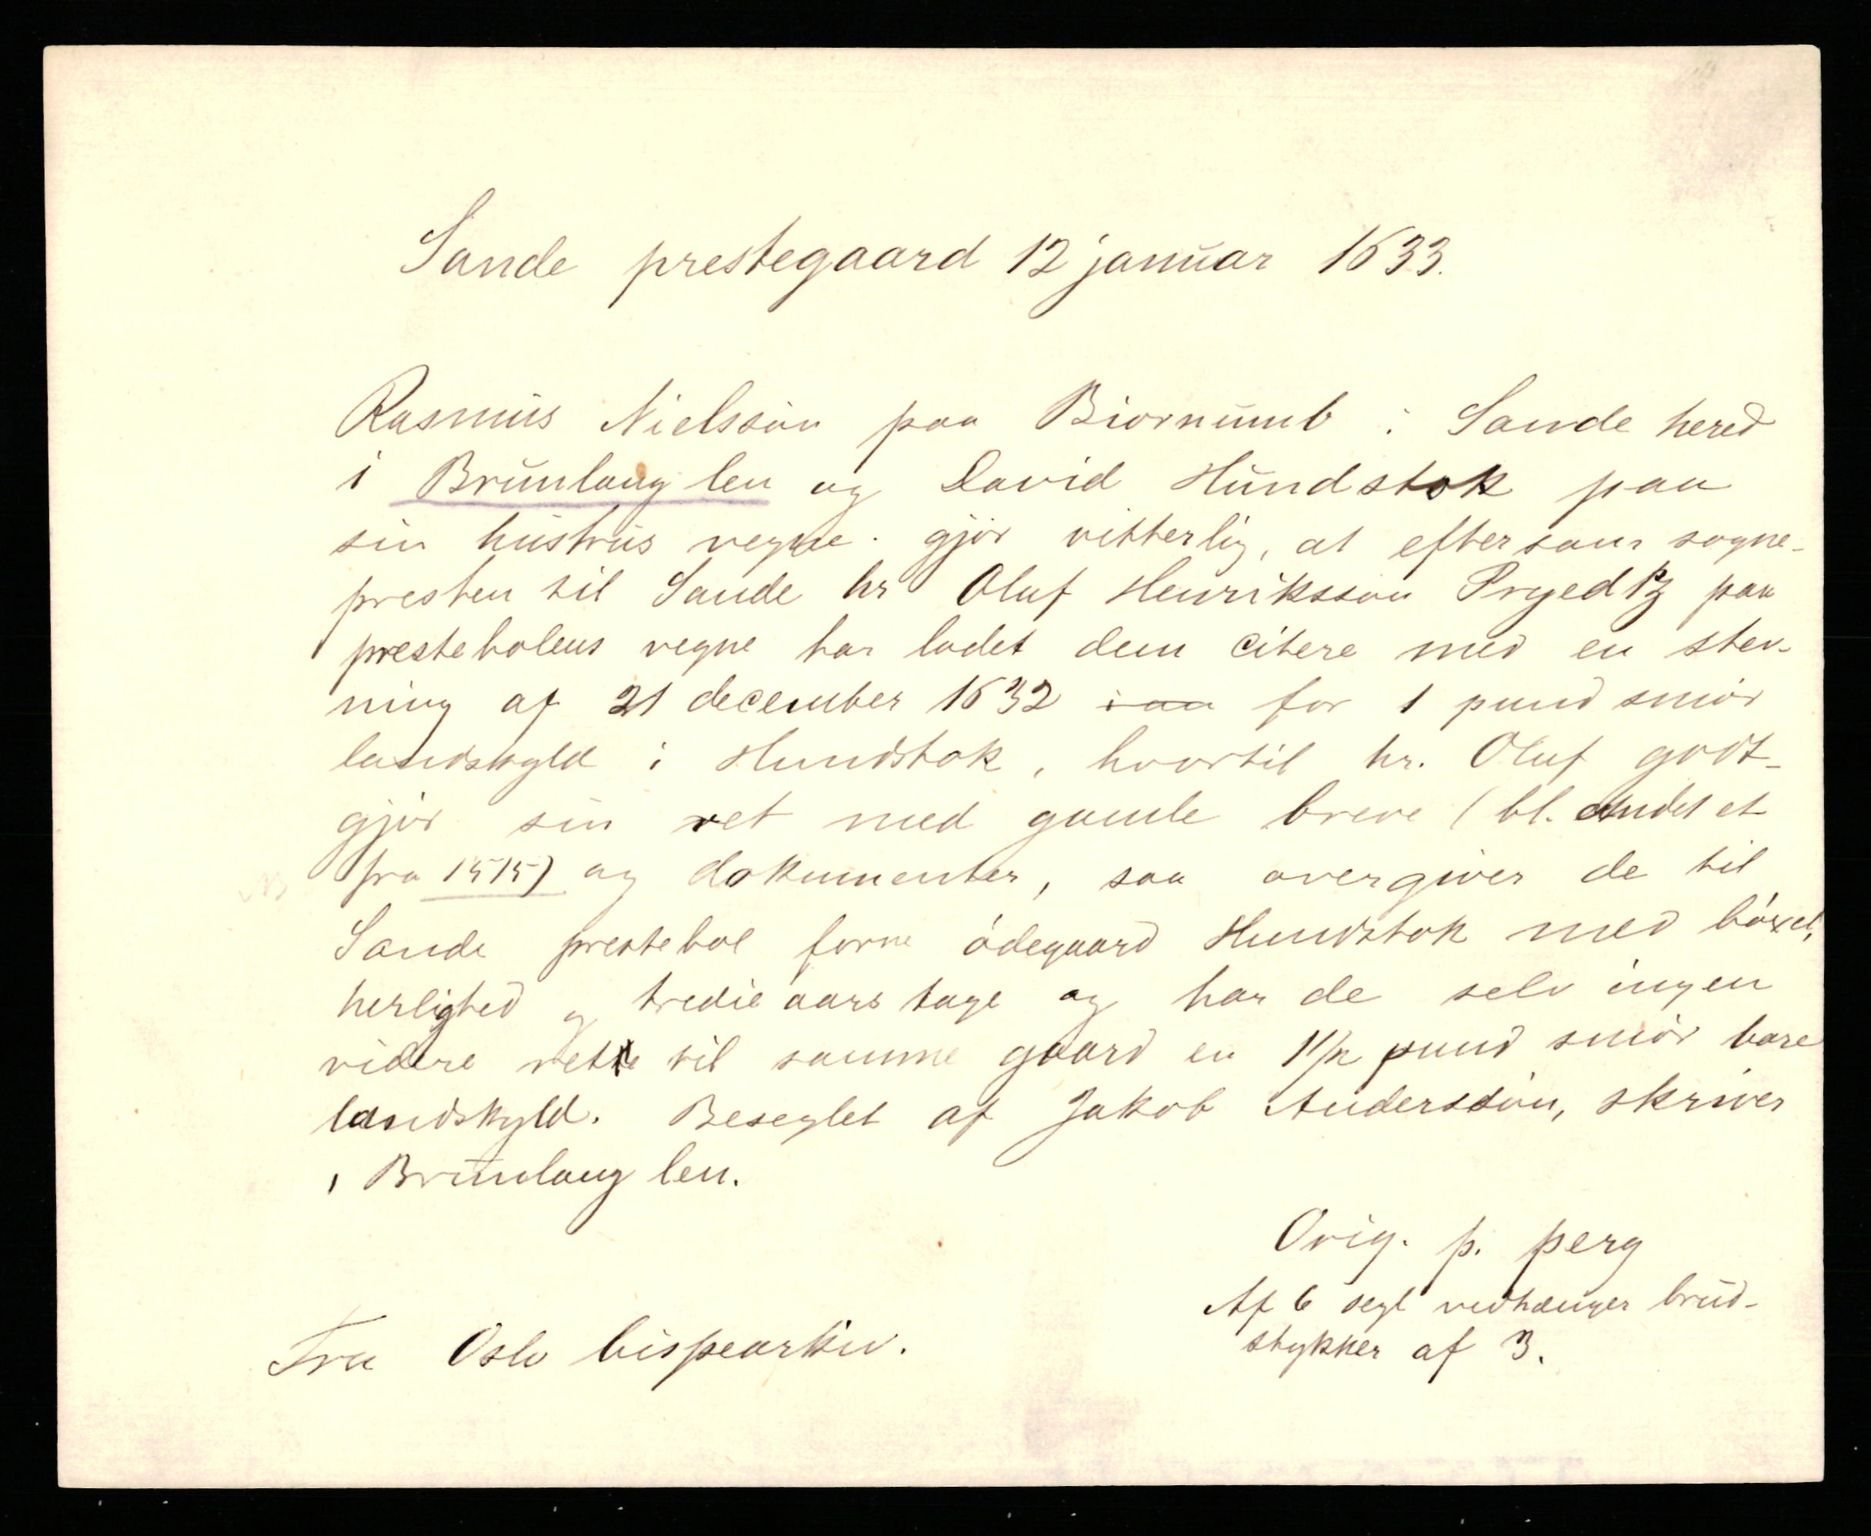 Sande prestegaard 12 januar 1633.
Rasmus Nielssön paa Biornumb i Sande hered
i Brunlaug len og David Hundstok paa
sin hustrus vegne. gjör vitterlig, at eftersom sogne-
presten til Sande hr Oluf Henriksson Pryedtz paa
prestebolens vegne har ladet dem citere med en stev-
ning af 21 december 1632 for 1 pund smör
landskyld i Hundstok, hvortil hr. Oluf godt-
gjör sin ret med gamle breve (bl. andet et
fra 1515) og dokumenter, saa overgiver de til
Sande prestebol forne ödegaard Hundstok med böxel,
herlighed og tredie aars tage og har de selv ingen
videre rette til samme gaard en 1 1/2 pund smör bare
landskyld. Beseglet af Jakob Anderssön, skriver
i Brunlaug len.
Orig. p. perg
Af 6 segl vedhænger brud-
stykker af 3.
Fra Oslo bispearkiv.